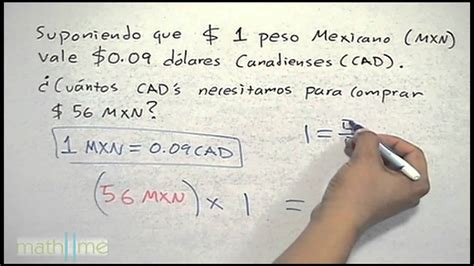 Suponiendo que $ 1 peso Mexicano (MXN)
vale $0.09 dólares Canadienses (CAD).
¿Cuántos CAD's necesitamos para comprar
$ 56 MXN?
1 MXN = 0.09 CAD
1 =
(56 MXN) × 1 =
math||me